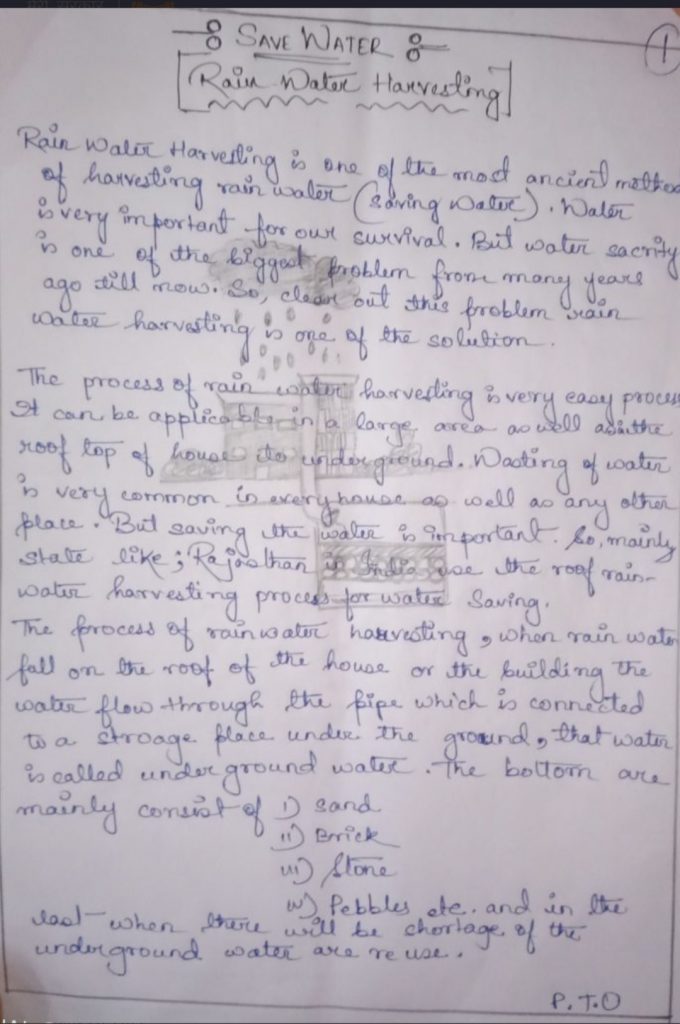 SAVE WATER
1
Rain Water Harvesting
Rain Water Harvesting is one of the most ancient method
of harvesting rain water (saving water). Water
is very important for our survival. But water sacrity
is one of the biggest problem from many years
ago till now. So, clear out this problem rain
water harvesting is one of the solution.
The process of rain water harvesting is very easy process
It can be applicable in a large area as well as in the
roof top of house to underground. Wasting of water
is very common in every house as well as any other
place. But saving the water is important. So, mainly
state like; Rajasthan in India use the roof rain-
water harvesting process for water Saving.
The process of rainwater harvesting, when rain water
fall on the roof of the house or the building the
water flow through the pipe which is connected
to a stroage place under the ground, that water
is called underground water. The bottom are
mainly consist of i) Sand
ii) Brick
iii) Stone
iv) Pebbles etc. and in the
last when there will be shortage of the
underground water are re use.
P.T.O